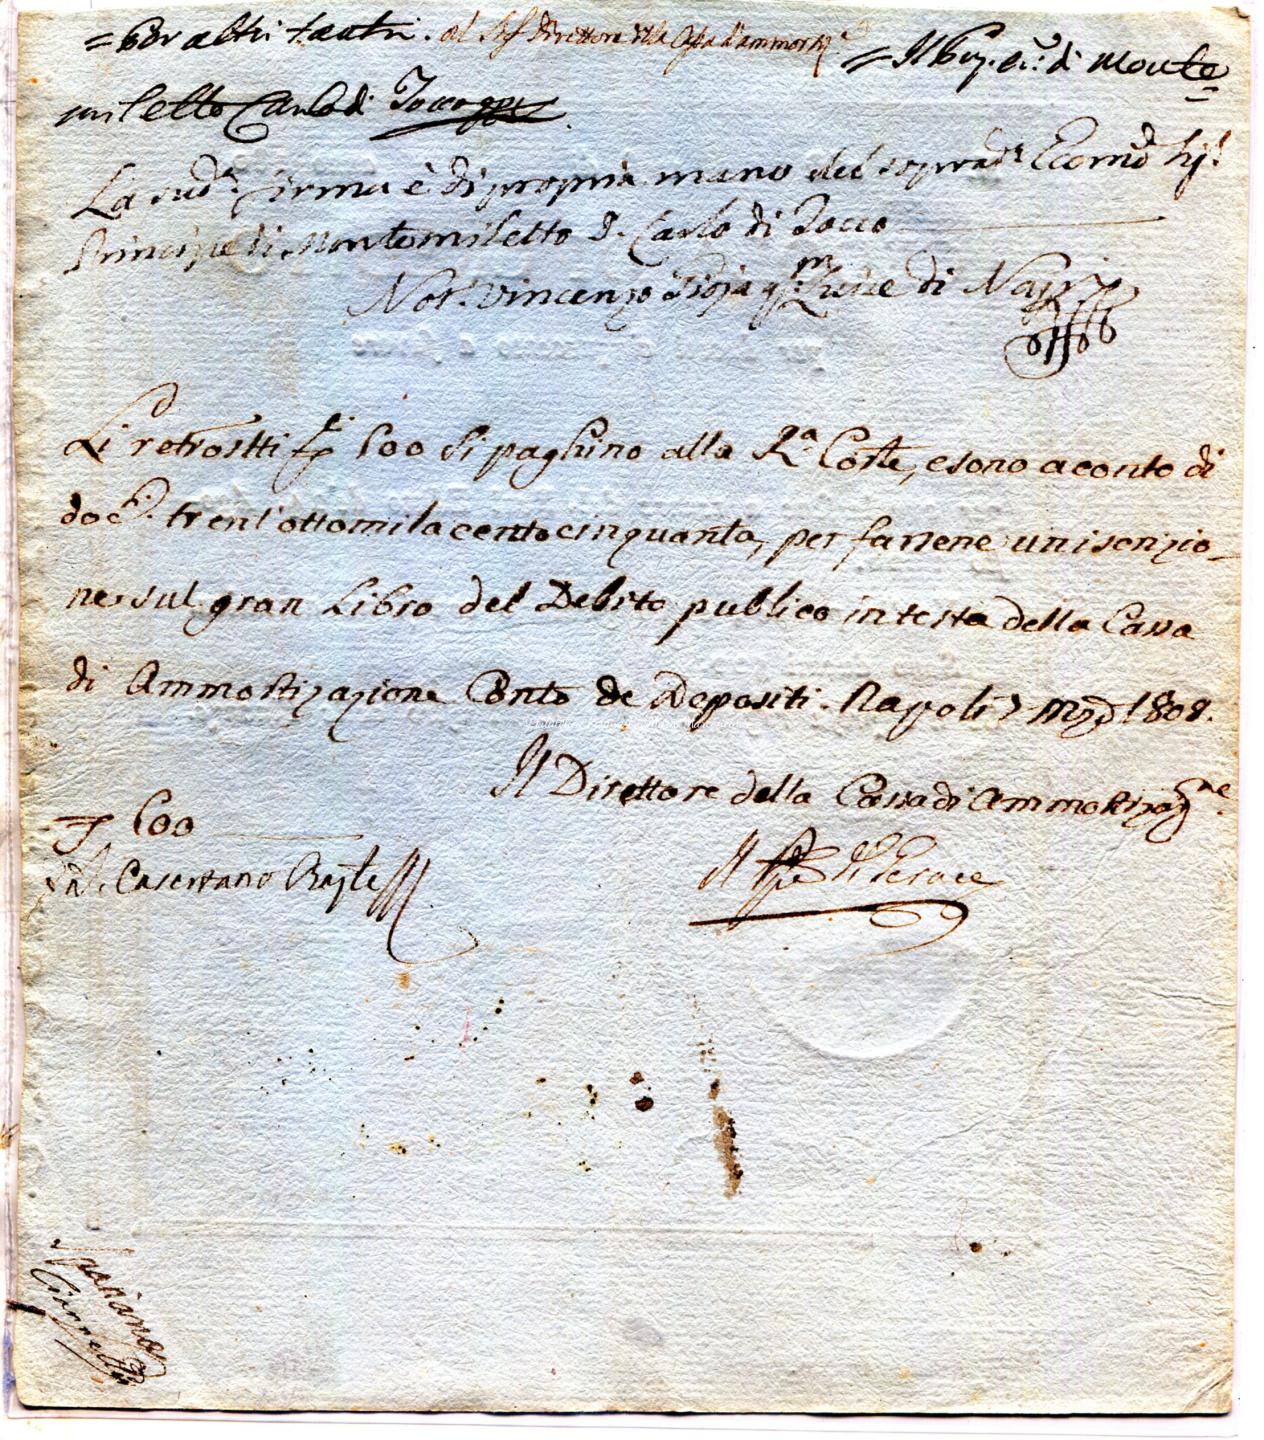 = Per altri tanti. al Sig.r Direttore della Cassa d'ammort.e = Il Prin.e di Monte
miletto Carlo di Tocco
La sud.a firma è di propria mano del soprad.o Ecc.mo Sig.r
Principe di Montemiletto D. Carlo di Tocco
Not. Vincenzo di Nap.
Li retroscitti 600 si paghino alla R.a Corte, e sono a conto di
doc.i trent'ottomila cento cinquanta, per farsene un iscrizio-
ne sul gran Libro del Debito publico in testa della Cassa
di Ammortizazione Conto de Depositi. Napoli 7 M 1808.
Il Direttore della Cassa di Ammortizaz.ne
600
Casertano
Il P.pe di Gerace